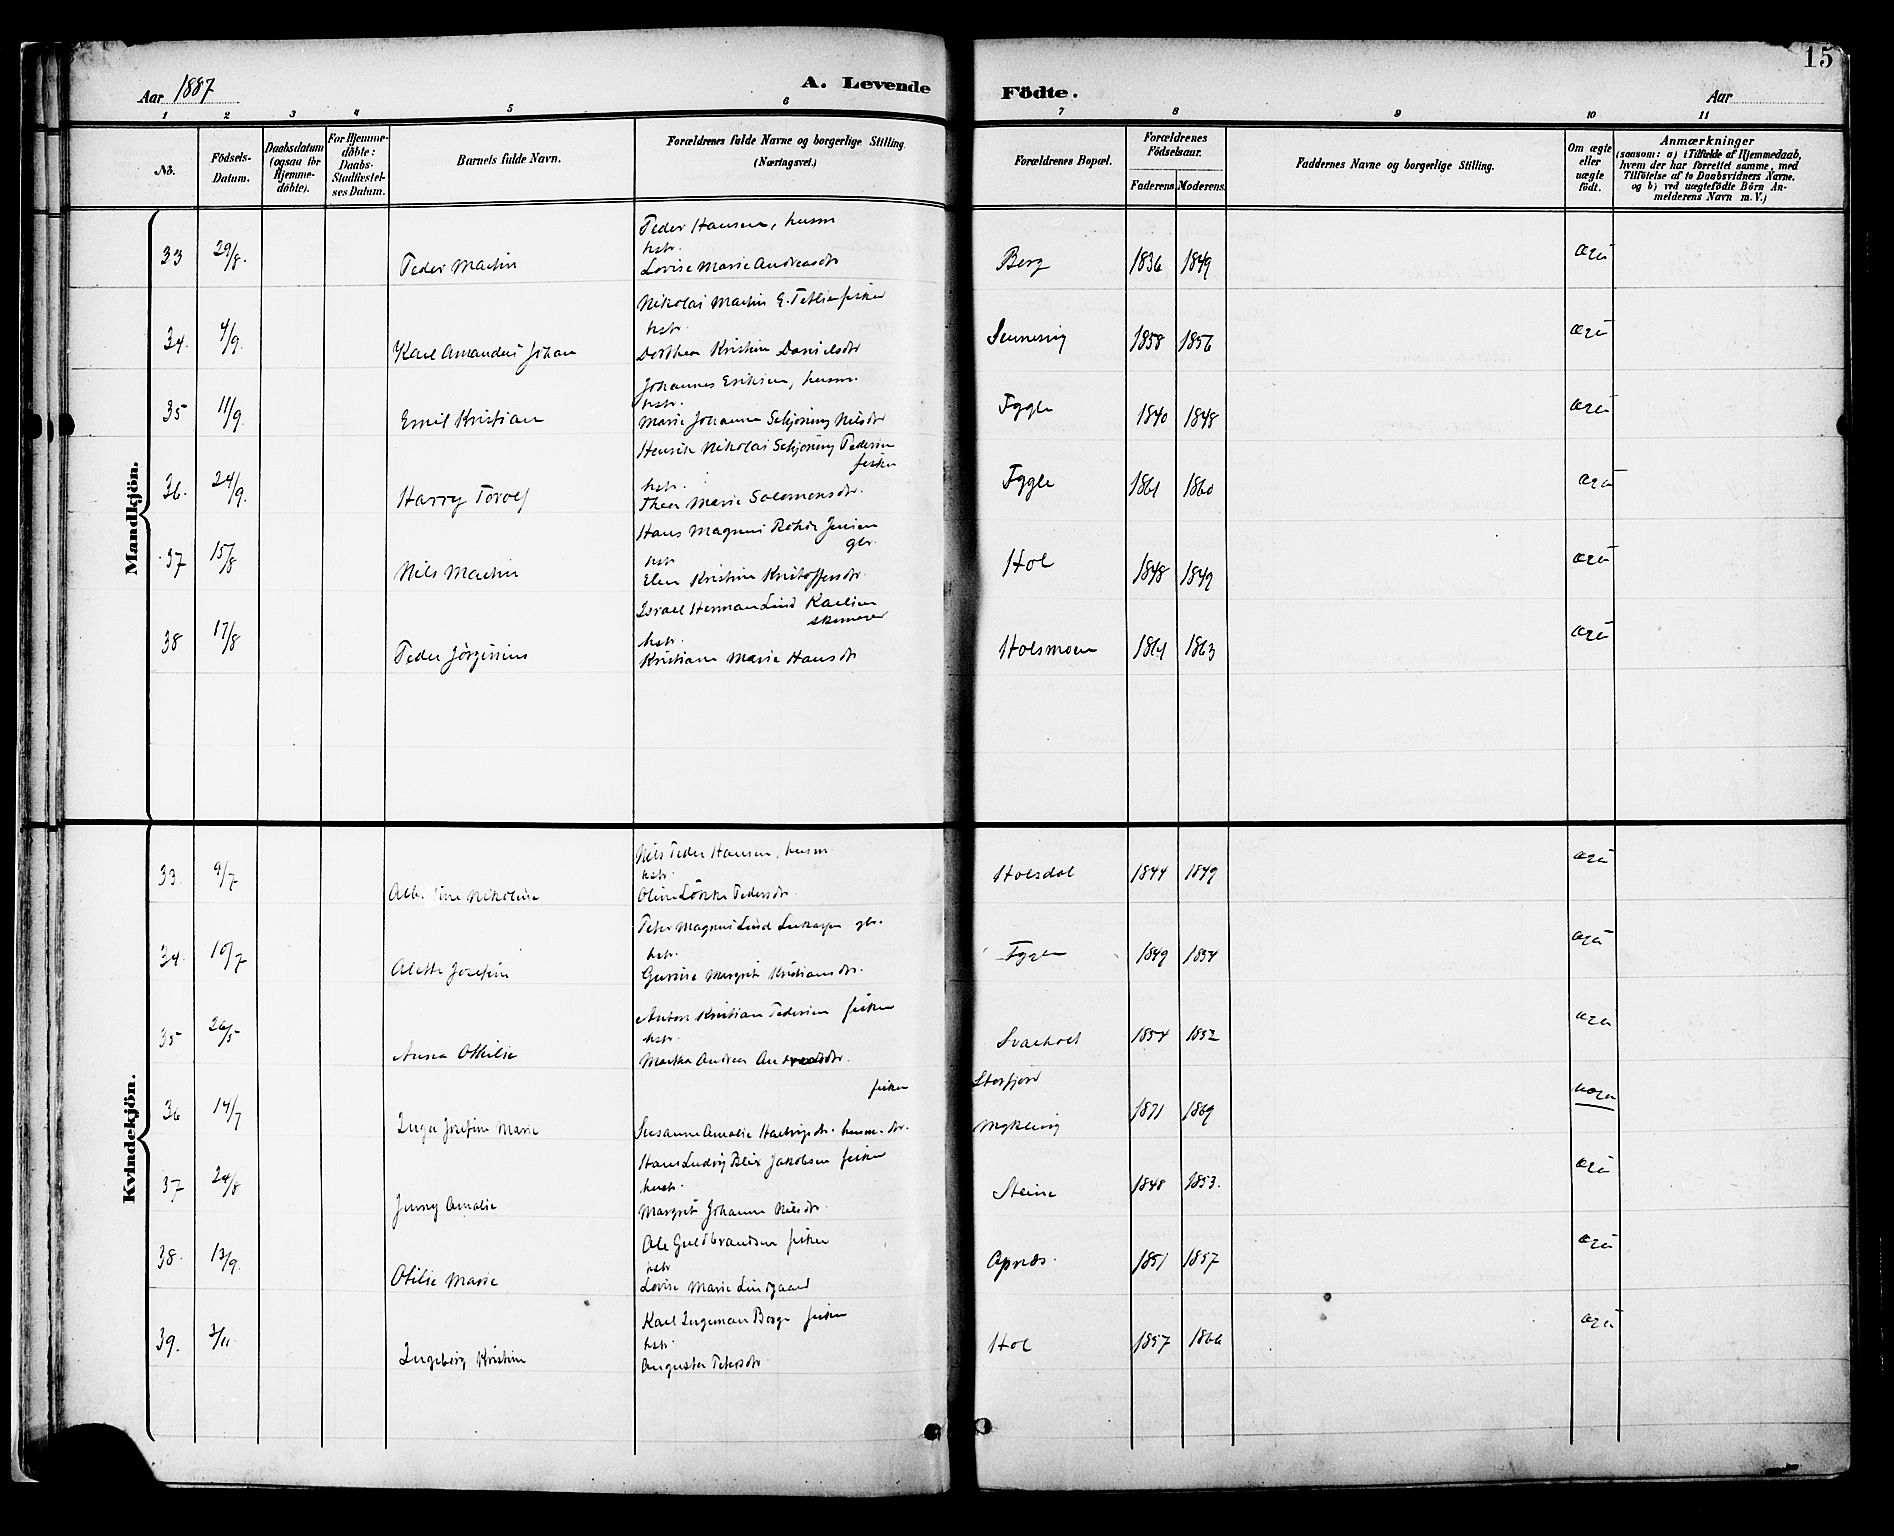 15
Aar 1887
A. Levende Födte.
Aar
1 2 3 4 5 6 7 8 9 10 11
No.
Födsels-Datum.
Daabsdatum (ogsaa for Hjemme-döbte).
For Hjemme-döbte: Daabs-Stadfæstel-ses Datum.
Barnets fulde Navn.
Forældrenes fulde Navne og borgerlige Stilling. (Næringsvei.)
Forældrenes Bopæl.
Forældrenes Födselsaar.
Faderens. Moderens.
Faddernes Navne og borgerlige Stilling.
Om ægte eller uægte födt.
Anmærkninger
(saasom: a) i Tilfælde af Hjemmedaab,
hvem der har forrettet samme, med
Tilföielse af to Daabsvidners Navne.
og b) ved uægtefödte Börn An-
melderens Navn m. V.)
Mandkjön.
Peder Hansen, husm
33 29/8. Peder Martin hstr. Lovise Marie Andreasdr Berg 1836 1849 ægte
Nikolai Martin E. fisker
34. 4/9. Karl Amandus Johan hstr. Dorthea Kristine Danielsdr 1858 1856 ægte
Johannes Eriksen, husm.
35 11/9. Emil Kristian hstr. Marie Johanna Schjöning Nilsdr Fygle 1840 1848 ægte
Henrik Nikolai Schjöning Pedersen
fisker
36. 24/9. Harry Torolf hstr. Thea Marie Salomonsdr. Fygle 1861 1860 ægte
Hans Magnus Jensen
gbr.
37 15/8 Nils Martin hstr Elen Kristine Kristoffersdr. Hol 1848 1849 ægte
Israel Herman Lind Karlsen
skomager
38 17/8 Peder Jörginius hstr. Kristiane Marie Hansdr Holsmoen 1861 1863 ægte
Kvindekjön.
Nils Peder Hansen, husm.
33. 9/7 Nikoline hstr. Oline Pedersdr. Holsdal 1844 1849 ægte
Peter Magnus Lind gbr.
34. 10/7 Alette Josefine hstr. Margrit Kristiansdr. Fygle 1849 1854 ægte
Anton Kristian Pedersen fisker
35 26/5 Anna Othilie hstr. Martha Andrea Svarholt 1854 1852 ægte
fisker Storfjord
36 14/7 Inga Josefine Marie Susanne Amalie Hartvigsdr. husm. dr. 1871 1869 uægte
Hans Ludvig Blix Jakobsen fisker
37 24/8 Jenny Amalie hustr. Margrit Johanna Nilsdr. Steine 1848 1853. ægte
Ole Guldbrandsen fisker
38. 13/9. Otilie Marie hstr Lovise Marie Lindgaard 1851 1857 ægte
Karl Ingeman Borge fisker
39. 3/11 Ingeborg Kristine hstr. Augusta Petersdr. Hol 1857 1866 ægte